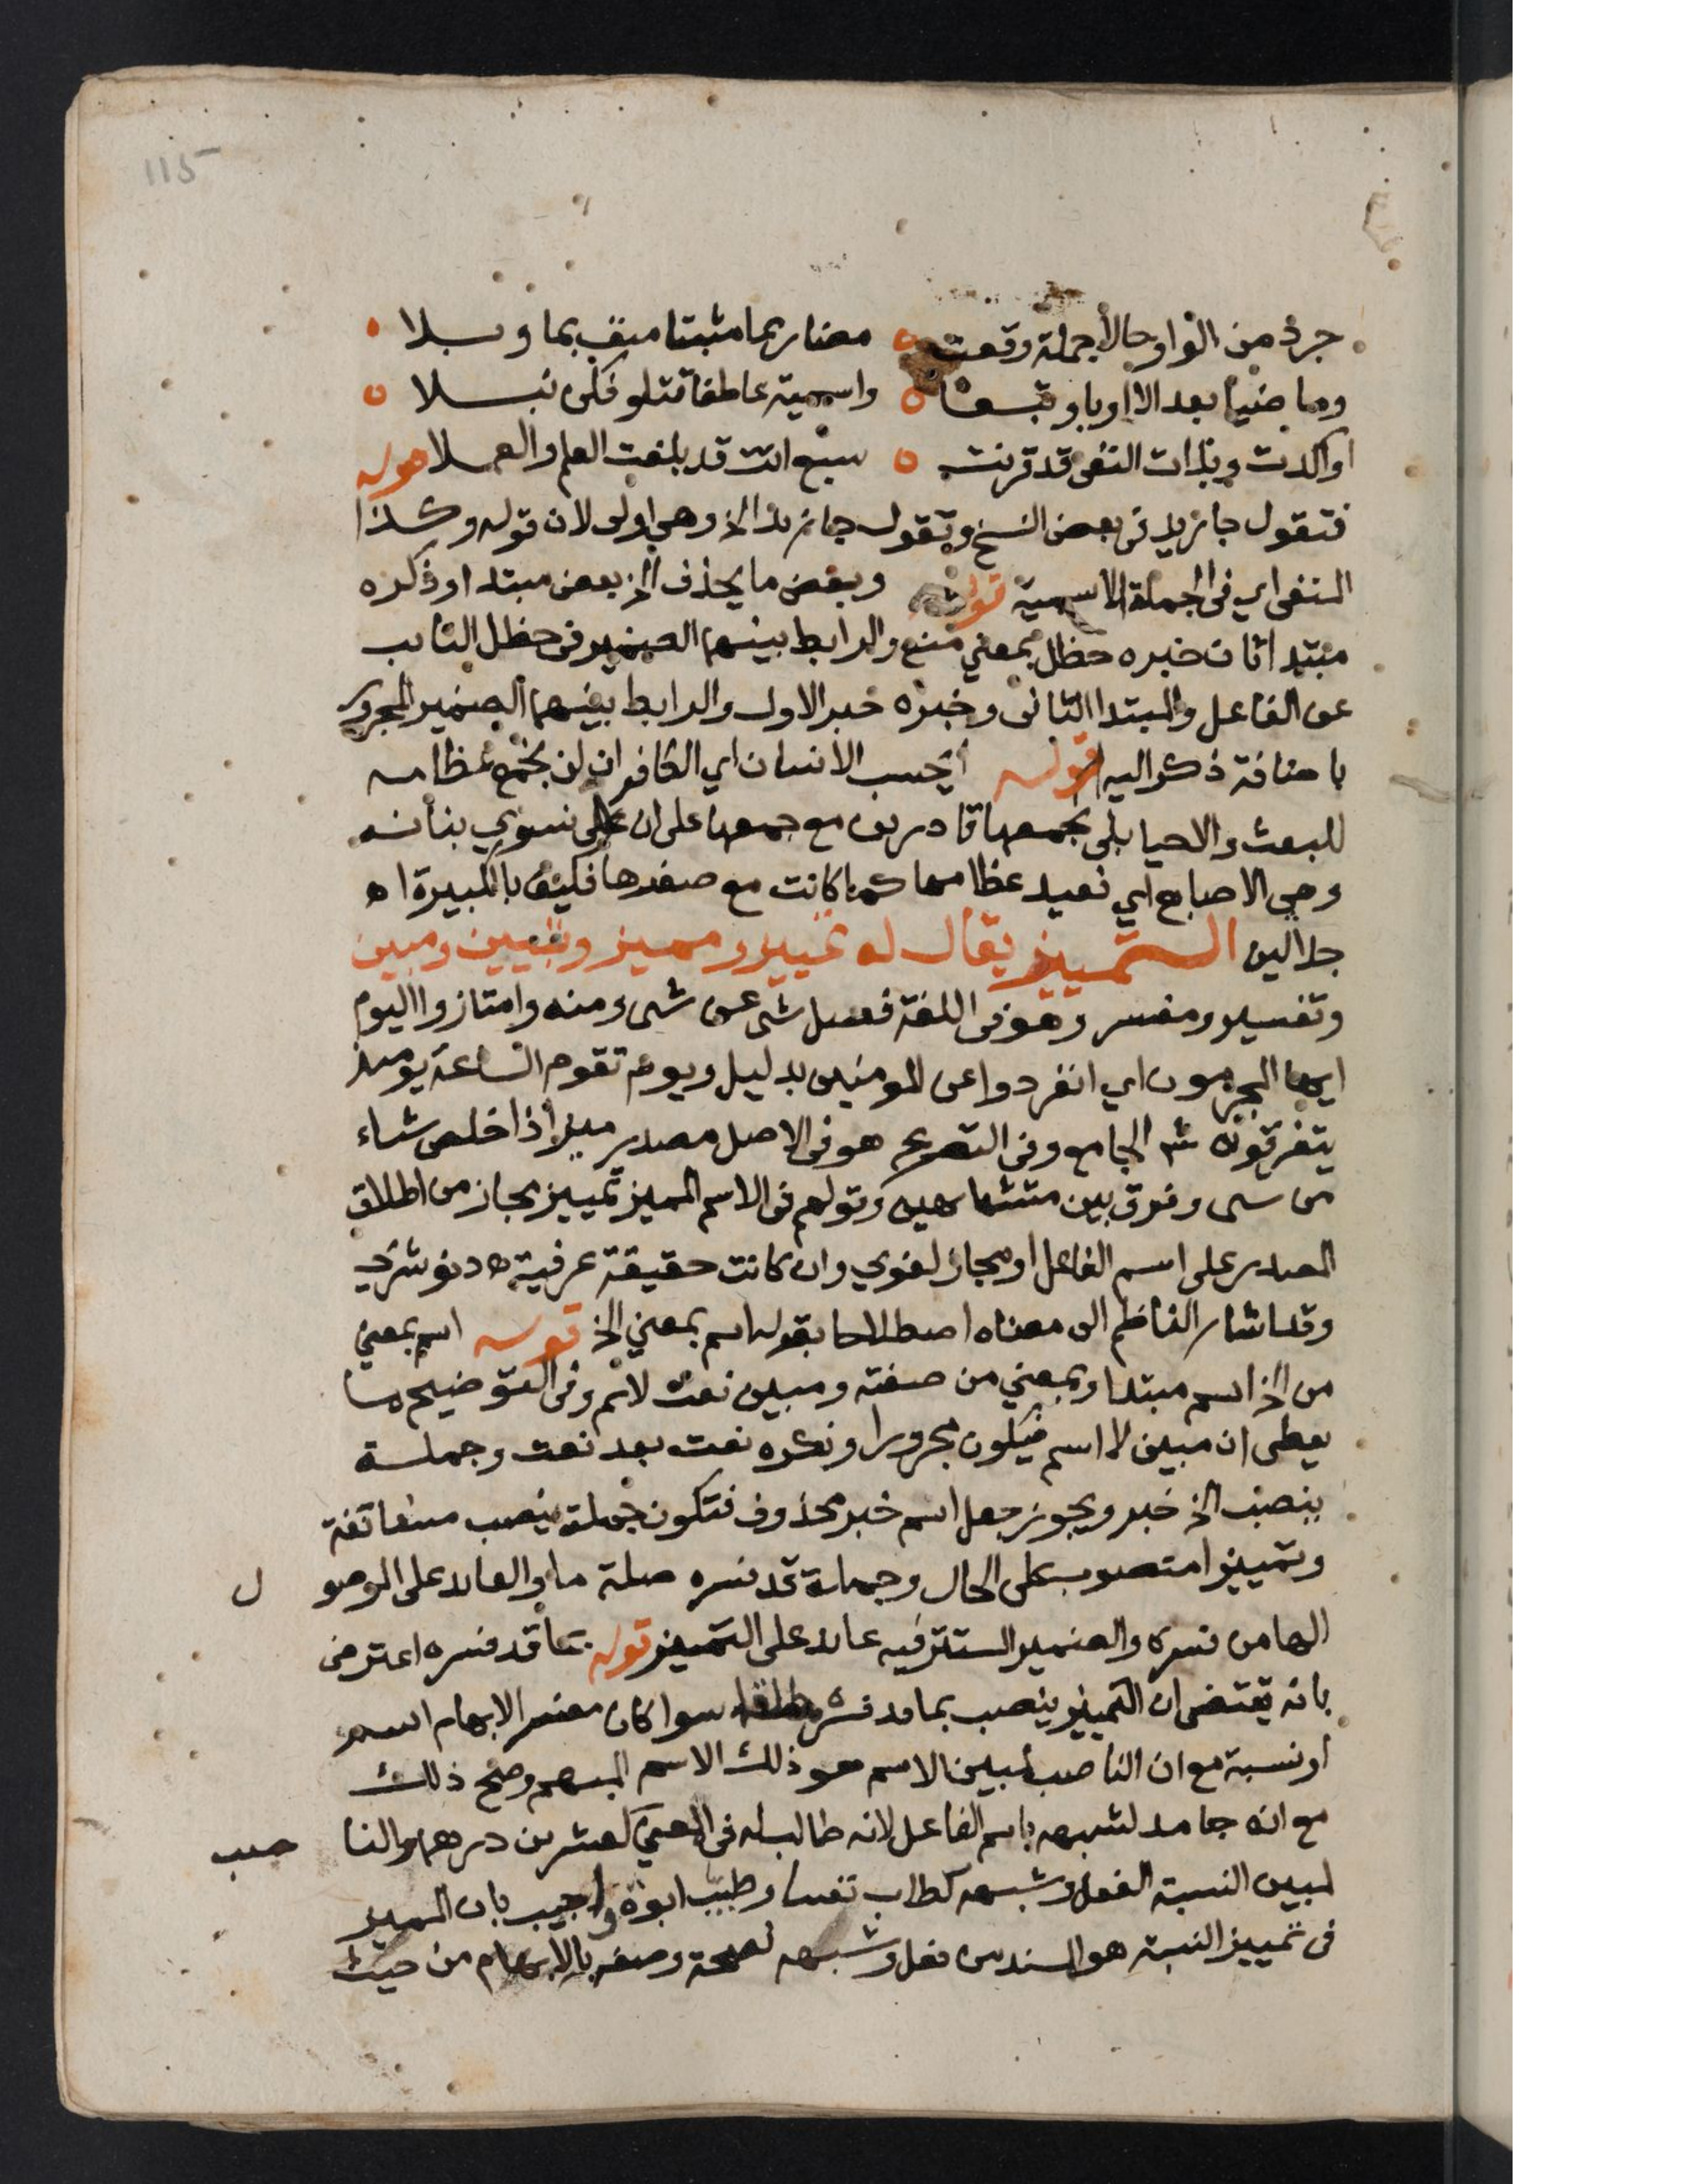 115
جرد من الواو حالا جملة وقعت ه مضارعا مثبتا منف بما وبلا ه
وماضيا بعد الا اوباو تبعا ه واسمية عاطفا تتلو فكن نبلا ه
اواكدت وبذات النفى قد قرنت ه سبع اتت قد بلغت العلم والعملا قوله
فتقول جا زيد فى بعض النسخ وتقول جا زيد الخ وهى اولى لان قوله وكذا
المنفى اي فى الجملة الاسمية قوله وبعض ما يحذف الخ بعض مبتدا وذكره
مبتدا ثان خبره حظل بمعنى منع والرابط بينهما الضمير فى حظل النايب
عن الفاعل والمبتدا الثانى وخبره خبر الاول والرابط بينهما الضمير المجرور
باضافة ذكر اليه قوله أيحسب الانسان اي الكافر ان لن نجمع عظامه
للبعث والاحيا بلى نجمعها قادرين مع جمعها على ان نسوي بنانه
وهى الاصابع اي نعيد عظامها كما كانت مع صغرها فكيف بالكبيرة اه
جلالين التمييز يقال له تمييز ومميز وتبيين ومبين
وتفسير ومفسر وهو فى اللغة فصل شى عن شىء ومنه وامتازوا اليوم
ايها المجرمون اي انفردوا عن المومنين بدليل ويوم تقوم الساعة يوميذ
يتفرقون شه الجامع وفى التصريح هو فى الاصل مصدر ميز اذا خلص شياء
من شى وفرق بين متشابهين وقولهم فى الاسم المميز تمييز مجاز من اطلاق
المصدر على اسم الفاعل او مجاز لغوي وان كانت حقيقة عرفية اه دنوشري
وقد اشار الناظم الى معناه اصطلاحا بقوله اسم بمعنى الخ قوله اسم بمعنى
من الخ اسم مبتدا وبمعنى من صفته ومبين نعت لاسم وفى التوضيح ما
يعطى ان مبين لا اسم فيكون مجرورا ونكره نعت بعد نعت وجملة
ينصب الخ خبر ويجوز جعل اسم خبر محذوف فتكون جملة ينصب مستانفة
وتمييزا منصوب على الحال وجملة قد فسره صلة ما والعايد على الموصو ل
الها من فسره والضمير المستتر فيه عايد على التمييز قوله بما قد فسره اعترض
بانه يقتضى ان التمييز ينصب بما قد فسره مطلقا سوا كان مفسر الابهام اسم
او نسبة مع ان الناصب لمبين الاسم هو ذلك الاسم المبهم وصح ذلك
مع انه جامد لشبهه باسم الفاعل لانه طالب له فى المعنى كعشرين درهما والنا صب
لمبين النسبة الفعل وشبهه كطاب نفسا وطيب ابوة واجيب بان المميز
فى تمييز النسبة هو المسند من فعل وشبهه لصحة وصفه بالابهام من حيث